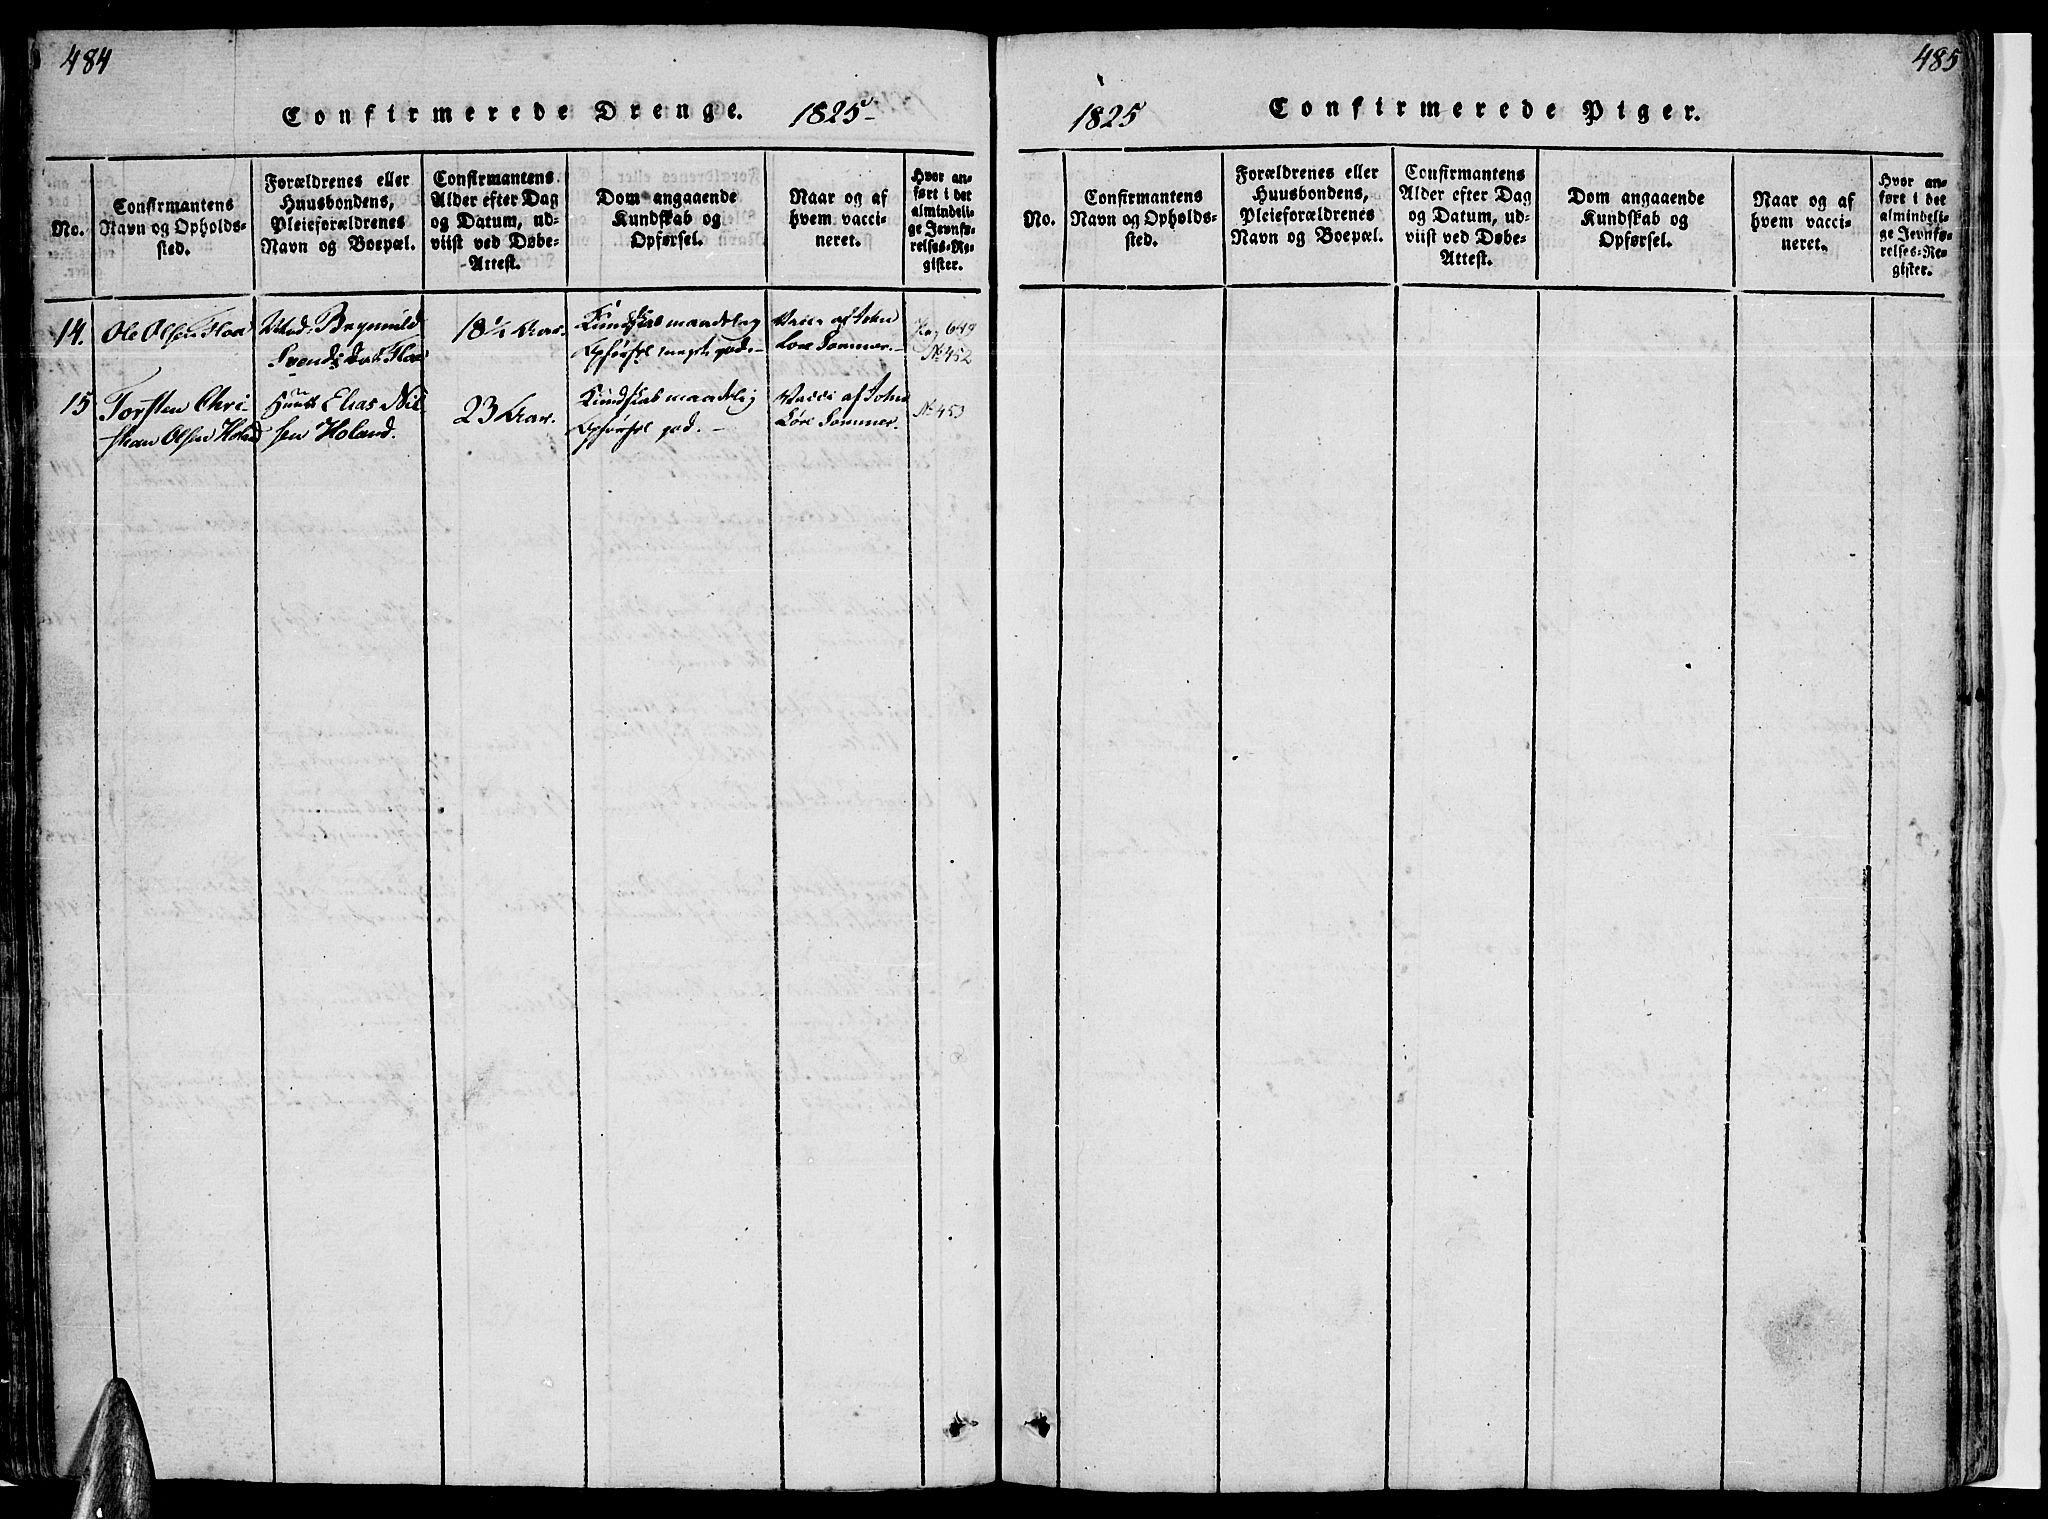 484
Confirmerede Drenge. 1825
No.
Confirmantens
Navn og Opholds-
sted.
Forældrenes eller
Huusbondens,
Pleieforældrenes
Navn og Boepæl.
Confirmantens
Alder efter Dag
og Datum, ud-
viist ved Døbe-
Attest.
Dom angaaende
Kundskab og
Opførsel.
Naar og af
hvem vacci-
neret.
Hvor an-
ført i det
almindeli-
ge Jevnfø-
relses-Re-
gister.
14.
Ole Olsen Floa
Svends
18 1/2 Aar.
Kundskab maadelig
Opførsel meget god.
Vacc. af John
Lore Sommer.
Pag 649
No 452
15
Torsten Chri-
stian Olsen Holand
Elias Nil
sen Holand.
23 Aar.
Kundskab maadelig
Opførsel god.
Vacci af John
Lore Sommer.
No 453
485
1825 Confirmerede Piger.
No.
Confirmantens
Navn og Opholds-
sted.
Forældrenes eller
Huusbondens,
Pleieforældrenes
Navn og Boepæl.
Confirmantens
Alder efter Dag
og Datum, ud-
viist ved Døbe-
Attest.
Dom angaaende
Kundskab og
Opførsel.
Naar og af
hvem vacci-
neret.
Hvor an-
ført i det
almindeli-
ge Jevnfø-
relses-Re-
gister.